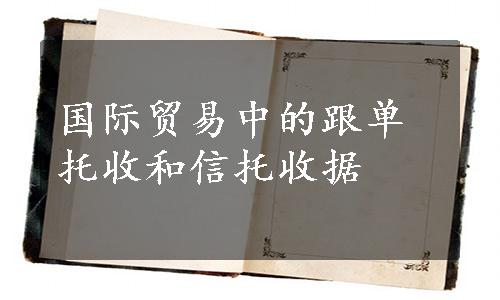 国际贸易中的跟单
托收和信托收据